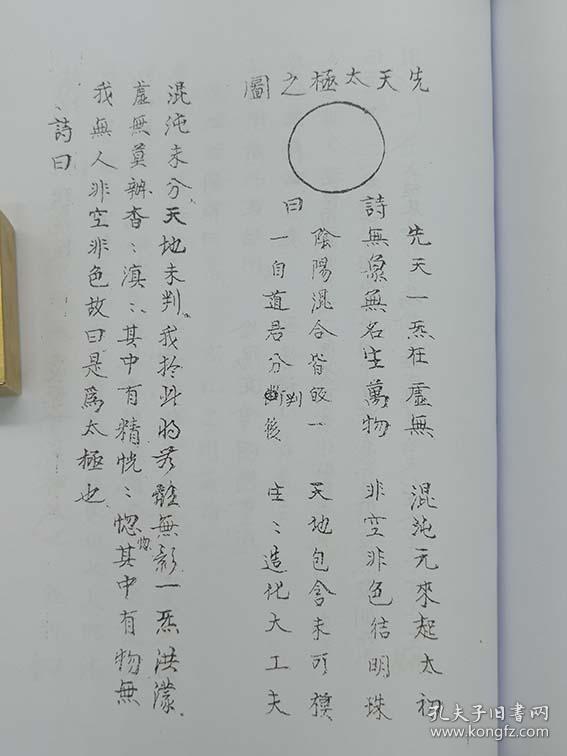 先天太極之圖
先天一炁在虛無 混沌无來起太初
詩無象無名生萬物 非空非色结明珠
陰陽混合皆皈一 天地包含未可摸
曰
一自道君分斷判後 生〻造化大工夫
混沌未分天地未判我於此時無影一炁洪濛
虛無莫辨杳〻溟〻其中有精恍〻惚惚其中有物無
我無人非空非色故曰是爲太極也
詩曰
孔夫子旧書网
kongfz.com